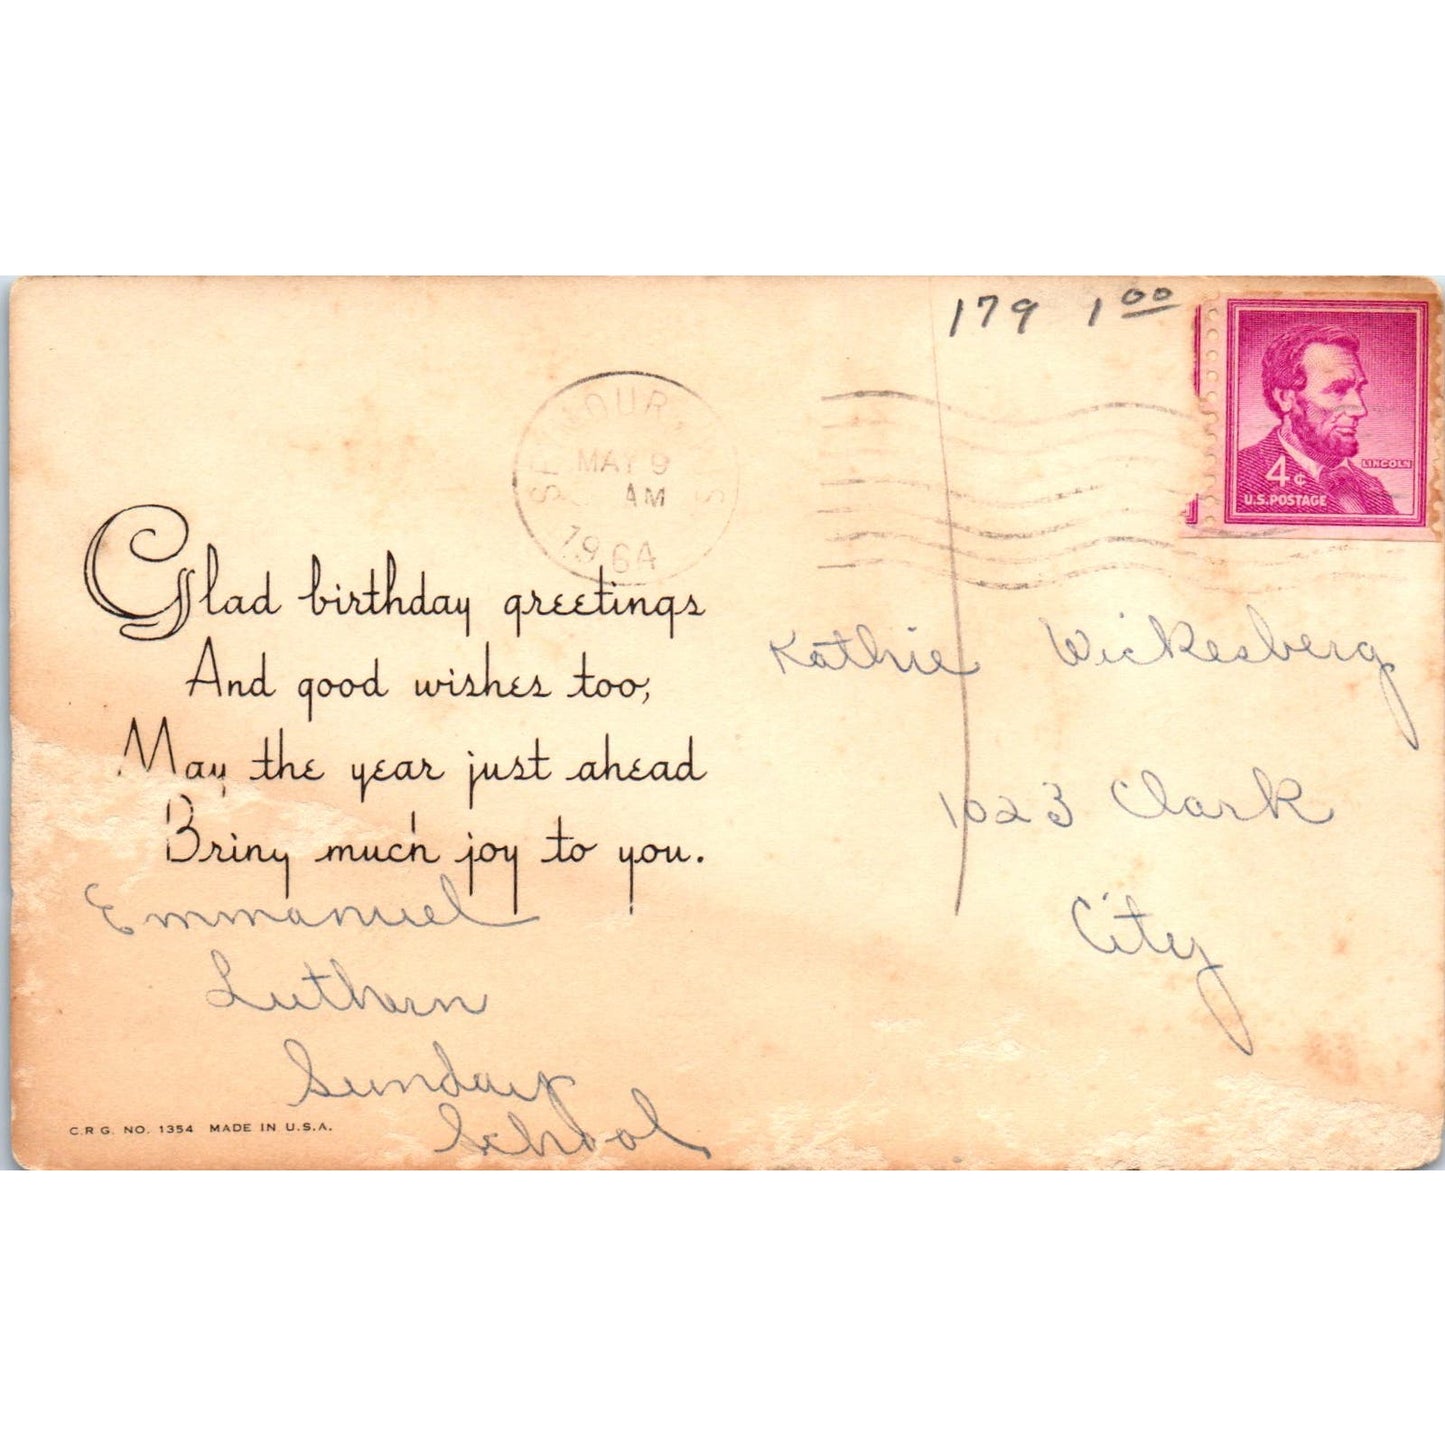 179 1 00
SEYMOUR WIS
MAY 9
AM
1964
LINCOLN
4¢
U.S. POSTAGE
Glad birthday greetings
And good wishes too,
May the year just ahead
Bring much joy to you.
Emmanuel
Luthern
Sunday
School
C.R.G. NO. 1354 MADE IN U.S.A.
Kathie Wickesberg
1023 Clark
City